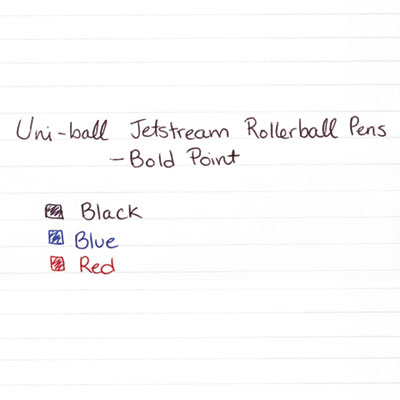 Uni-ball Jetstream Rollerball Pens
-Bold Point
Black
Blue
Red